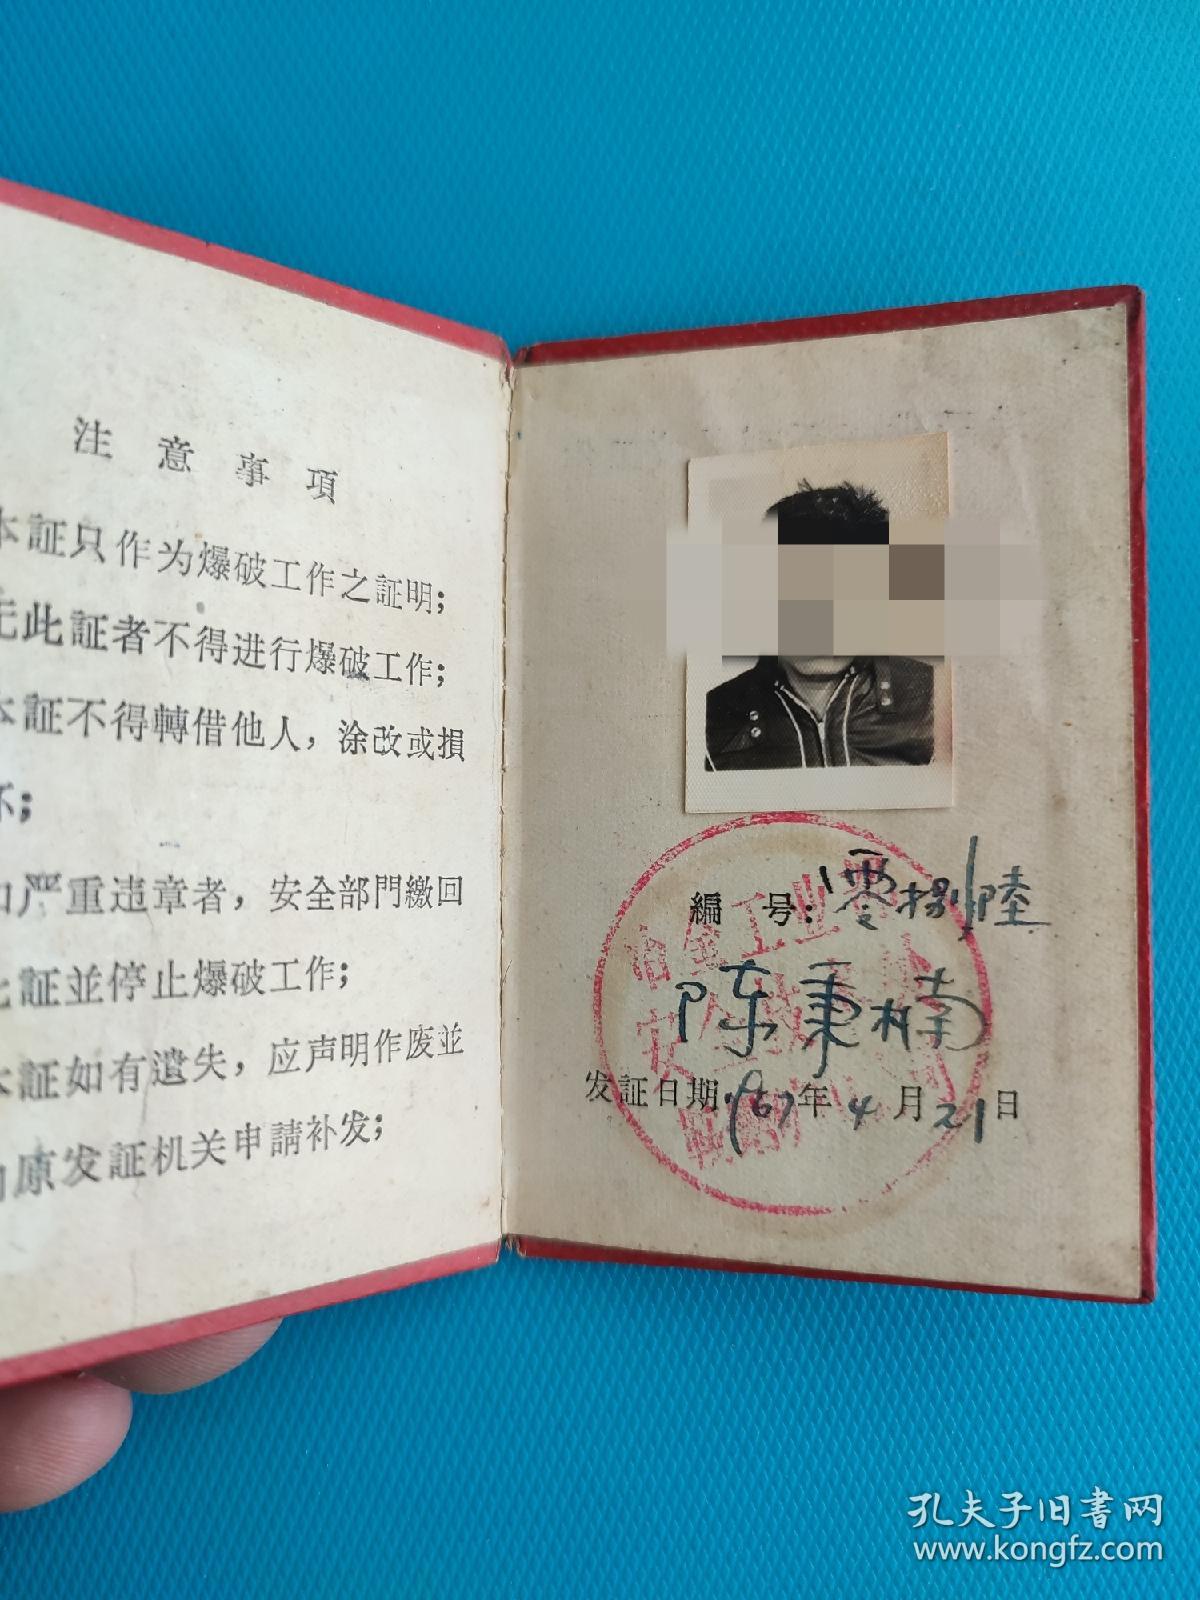 注意事項
本証只作为爆破工作之証明;
无此証者不得进行爆破工作;
本証不得轉借他人，涂改或損
坏;
如严重违章者，安全部門繳回
此証並停止爆破工作;
本証如有遺失，应声明作废並
向原发証机关申請补发;
編号：零捌陸
陈秉楠
发証日期1967年4月21日
孔夫子旧书网
www.kongfz.com